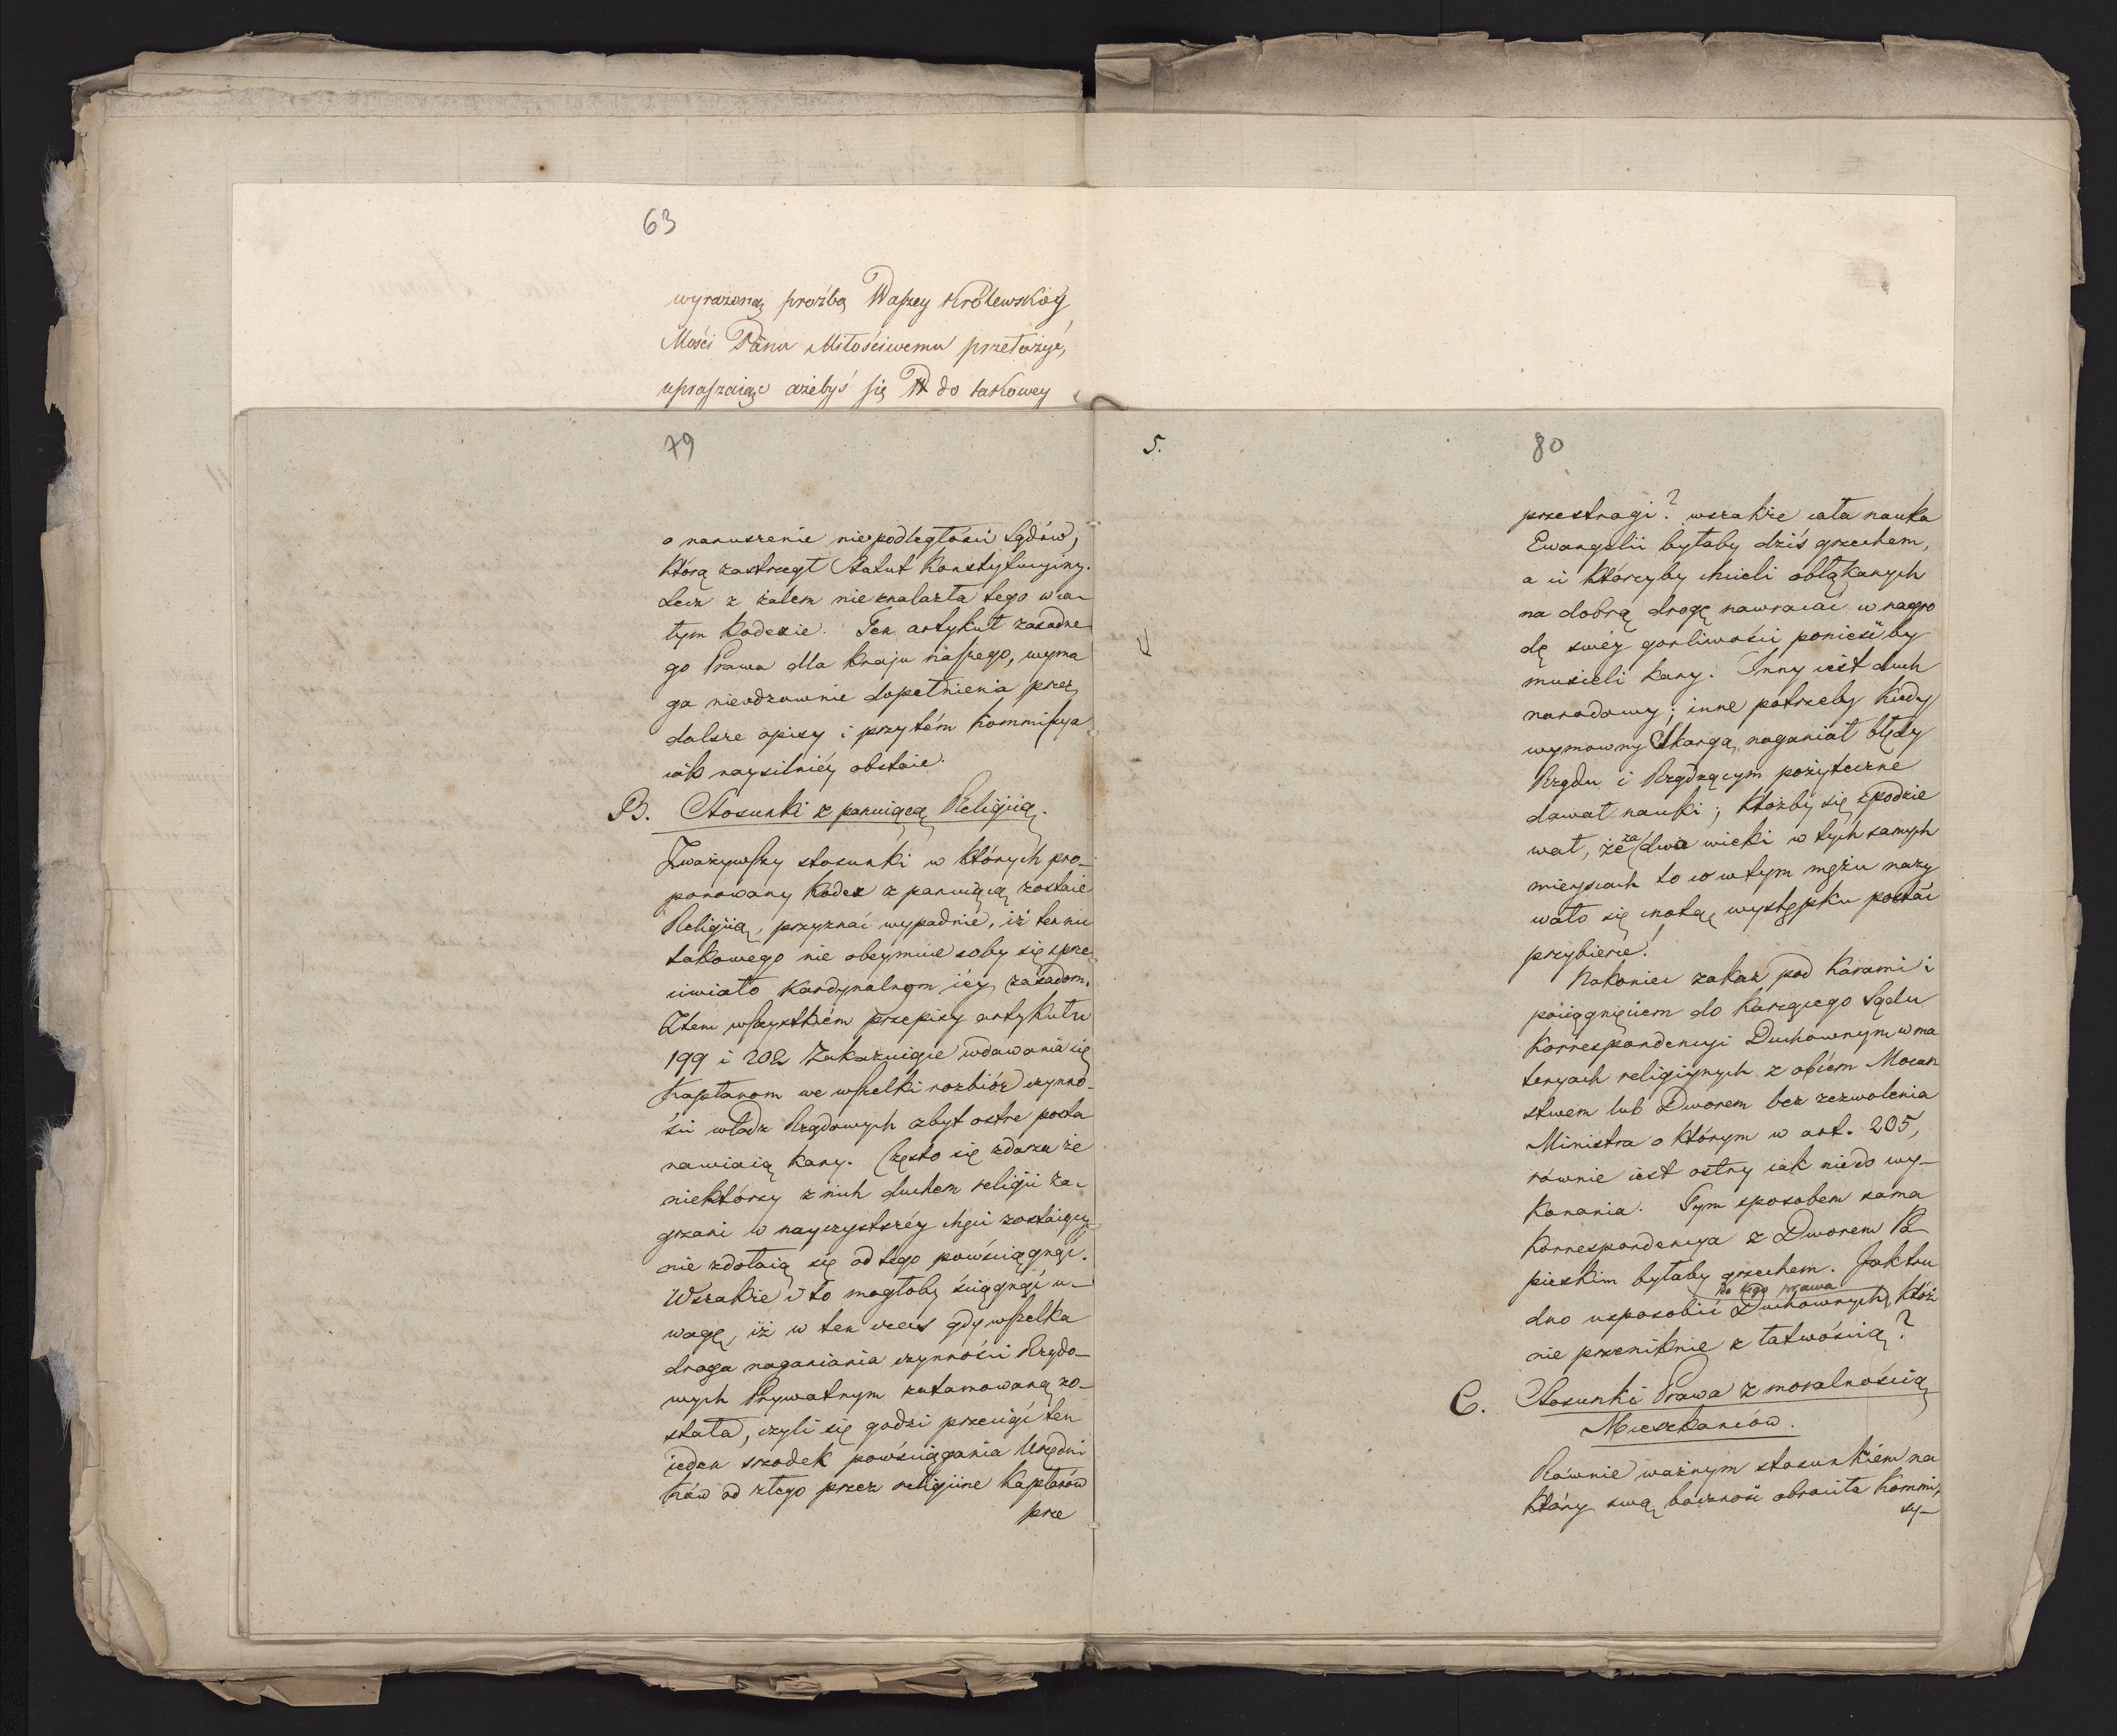 63
wyrażoną prozbą Waszey Królewskiéy
Mości Panu Miłościwemu przełożyć,
upraszaiąc ażebyś się do takowey
79
o naruszenie niepodległości Sądów,
którą zastrzegł Statut Konstytucyiny.
Lecz z żalem nie znalazła tego w ca-
łym Kodexie. Ten artykuł zasadne
go Prawa dla kraju naszego, wyma
ga nieodzownie dopełnienia przez
dalsze opisy i przytém Kommissya
iak naysilniéy obstaie.
B. Stosunki z panuiącą Religiią.
Zważywszy stosunki w których pro-
ponowany Kodex z panuiącą zostaie
Religiią, przyznać wypadnie, iż ten nic
takowego nie obeymuie coby się sprze
ciwiało kardynalnym iéy zasadom.
Ztem wszystkiém przepisy artykułu
199 i 202 Zakazuiące wdawania się
Kapłanom we wszelki rozbiór czynno-
ści władz Rządowych zbyt ostre posta
nawiaią kary. Często się zdarza że
niektórzy z nich duchem religii za-
grzani w nayczystszéy chęci zostaiący
nie zdołaią się od tego powściągnąć.
Wszakże i to mogłoby ściągnąć u-
wagę, iż w ten czas gdy wszelka
droga naganiania czynności Rządo-
wych Prywatnym zatamowaną zo-
stała, czyli się godzi przeciąć ten
ieden srzodek powściągania Urzędni
ków od złego przez religiine Kapłanów
prze
5.
80
przestrogi? wszakże cała nauka
Ewangelii byłaby dziś grzechem,
a ci którzyby chcieli obłąkanych
na dobrą drogę nawracać w nagro
dę swéy gorliwości ponieśćby
musieli kary. Inny iest duch
narodowy; inne potrzeby kiedy
wymowny Skarga, naganiał błędy
Rządu i Rządzącym pożyteczne
dawał nauki; któżby się spodzie
wał, że za dwa wieki w tych samych
mieyscach to co w tym mężu nazy
wało się cnotą, występku postać
przybierze!
Nakoniec zakaz pod karami i
pociągnięciem do karzącego Sądu
Korrespondencyi Duchownym w ma
teryach religiynych z obcém Mocar
stwem lub Dworem bez zezwolenia
Ministra o którym w art. 205,
równie iest ostry iak nie do wy-
konania. Tym sposobem sama
korrespondencya z Dworem Pa
pieskim byłaby grzechem. Jak tru
do tego prawa
dno usposobić Duchownych, któż
nie przeniknie z łatwością?
C. Stosunki Prawa z moralnością
Mieszkańców.
Równie ważnym stosunkiém na
który swą baczność obróciła Kommis
sy-